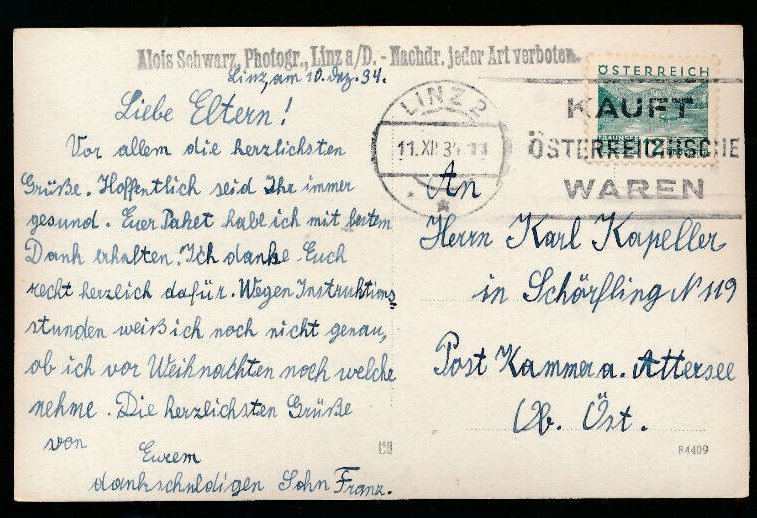 Alois Schwarz, Photogr., Linz a/D. - Nachdr. jeder Art verboten.
Linz, am 10. Dez. 34.
Liebe Eltern!
Vor allem die herzlichsten
Grüße. Hoffentlich seid Ihr immer
gesund. Euer Paket habe ich mit bestem
Dank erhalten. Ich danke Euch
recht herzlich dafür. Wegen Instruktions
stunden weiß ich noch nicht genau,
ob ich vor Weihnachten noch welche
nehme. Die herzlichsten Grüße
von
Eurem
dankschuldigen Sohn Franz.
LINZ 2
11.XII.34.11
ÖSTERREICH
KAUFT
ÖSTERREICHISCHE
WAREN
12
An
Herrn Karl Kapeller
in Schörfling N 119
Post Kammer a. Attersee
Ob. Öst.
84409